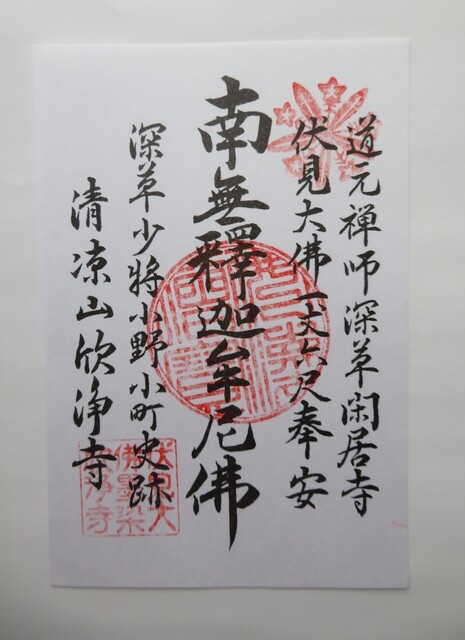 道元禅師深草閑居寺
伏見大佛一丈六尺奉安
南無釋迦牟尼佛
深草少将小野小町史跡
清凉山欣浄寺
伏見大
佛墨染
欣浄寺